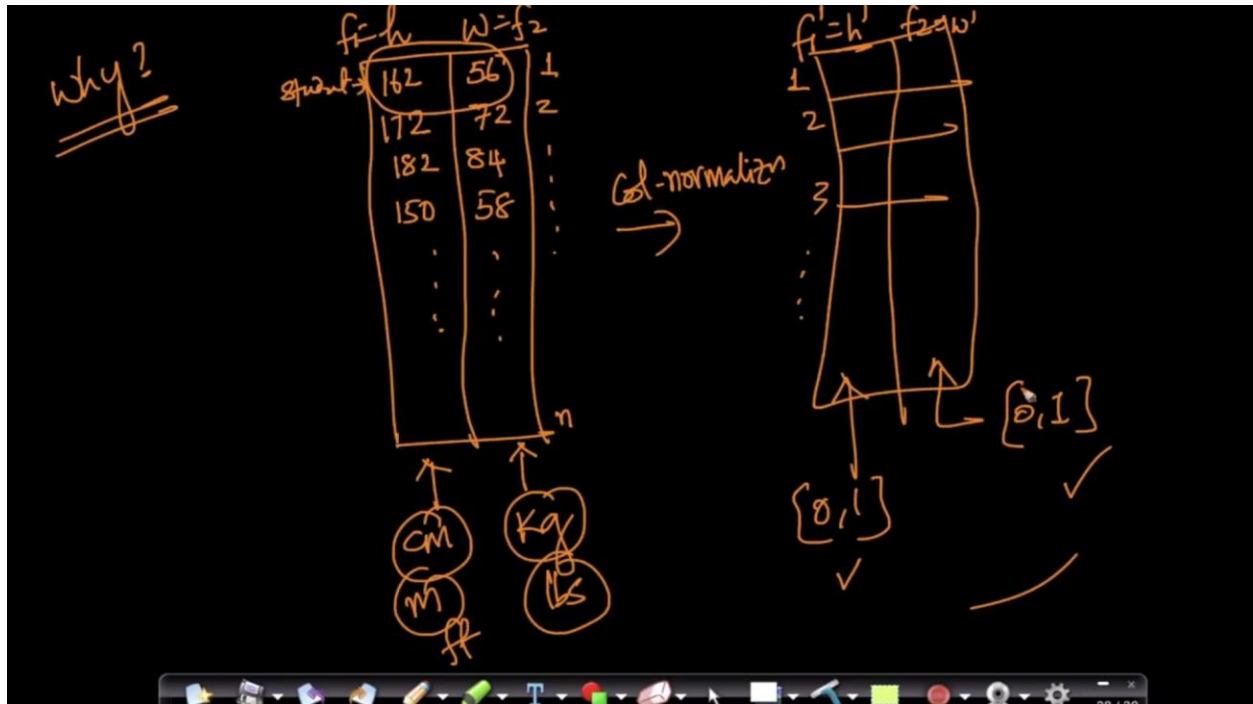 why?
f1=h w=f2
student→ 162 56 1
172 72 2
182 84
150 58
n
cm kg
m lbs
ft
col-normalizn
→
f1'=h' f2=w'
1
2
3
[0,1]
[0,1]
T